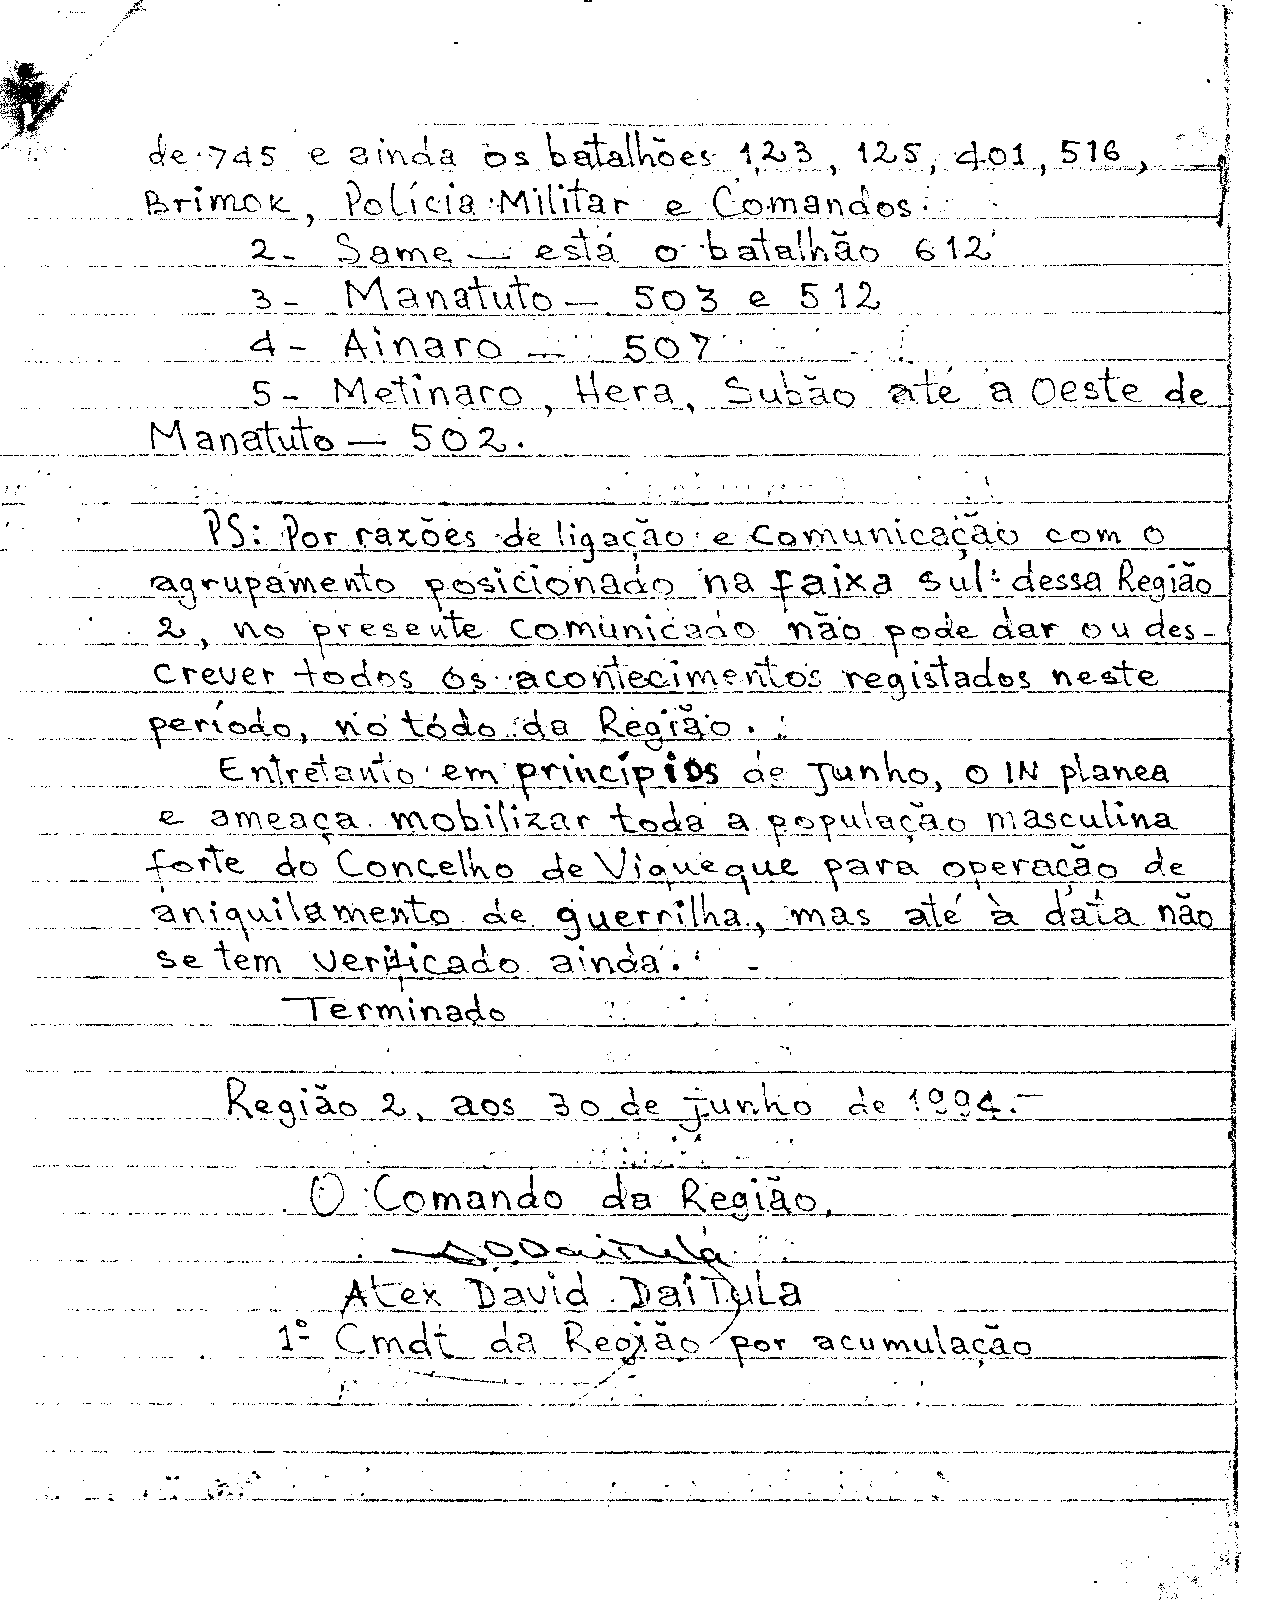 de 745 e ainda os batalhões 123, 125, 401, 516,
Brimok, Polícia Militar e Comandos.
2- Same — está o batalhão 612
3- Manatuto — 503 e 512
4- Ainaro — 507
5- Metinaro, Hera, Subão até a Oeste de
Manatuto — 502.
PS: Por razões de ligação e comunicação com o
agrupamento posicionado na faixa sul dessa Região
2, no presente comunicado não pode dar ou des-
crever todos os acontecimentos registados neste
período, no todo da Região.
Entretanto em princípios de junho, o IN planea
e ameaça mobilizar toda a população masculina
forte do Concelho de Viqueque para operação de
aniquilamento de guerrilha, mas até à data não
se tem verificado ainda. -
Terminado
Região 2, aos 30 de junho de 1994.-
O Comando da Região,
Daitula
Alex David DaiTuLa
1º Cmdt da Região por acumulação